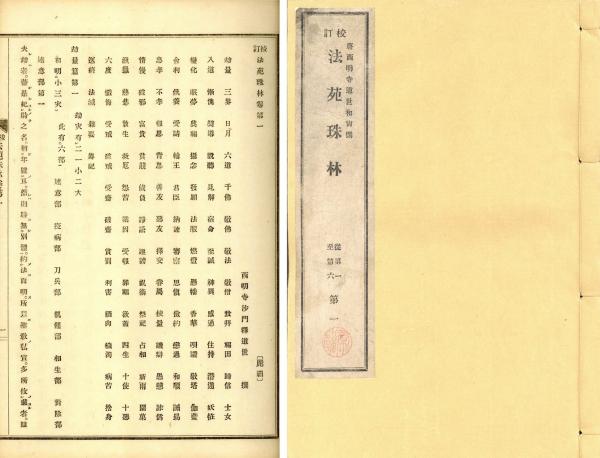 校訂
唐西明寺道世和尚撰
法苑珠林
從第一
至第六
第一
校訂法苑珠林卷第一
西明寺沙門釋道世 撰
劫量 三界 日月 六道 千佛 敬佛 敬法 敬僧 致拜 福田 歸信 士女
入道 慚愧 獎導 說聽 見解 宿命 至誠 神異 感通 住持 潛遁 妖怪
變化 眠夢 興福 攝念 發願 法服 燃燈 懸幡 香華 唄讚 敬塔 伽藍
舍利 供養 受請 輪王 君臣 納諫 審察 思愼 儉約 懲過 和順 誡勗
忠孝 不孝 報恩 背恩 善友 惡友 擇交 眷屬 機辯 愚戇 詐僞
惰慢 破邪 富貴 貧賤 債負 諍訟 謀謗 呪術 祭祀 占相 祈雨 園菓
漁獵 慈悲 放生 救厄 怨苦 業因 受報 罪福 欲蓋 四生 十使 十惡
六度 懺悔 受戒 破戒 受齋 破齋 賞罰 利害 酒肉 穢濁 病苦 捨身
送終 法滅 雜要 傳記
劫量篇第一 劫災有二一小二大
初明小三災 此有六部 述意部 疫病部 刀兵部 飢饉部 相生部 對除部
述意部第一
夫劫者。蓋是紀時之名。猶年號耳。然則時無別體。約法而明。所以